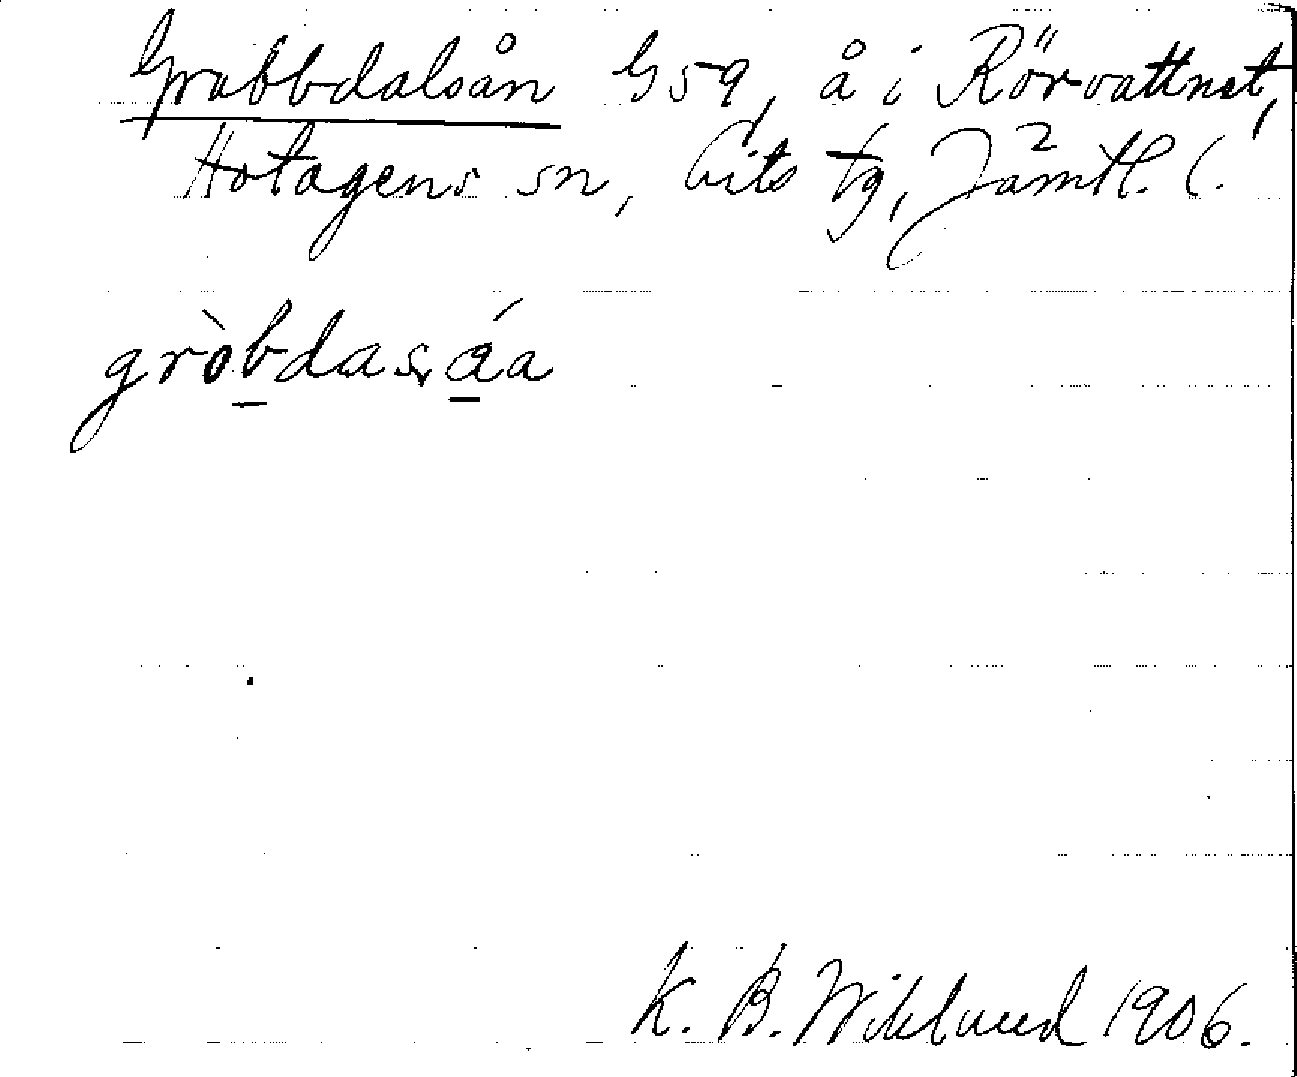 Grubbdalsån G59, å i Rörvattnet,
Hotagens sn, Lits tg, Jämtl. l.
gròbdas,áa
K. B. Wiklund 1906.